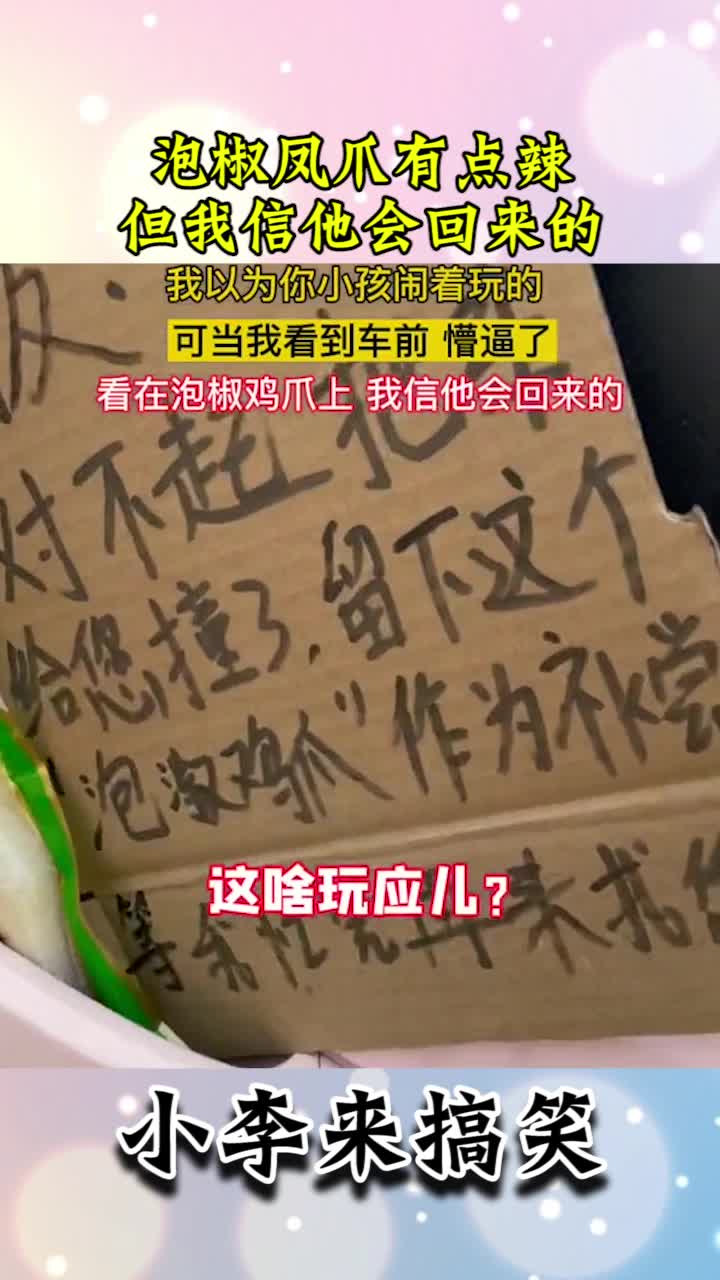 泡椒凤爪有点辣
但我信他会回来的
我以为你小孩闹着玩的
可当我看到车前 懵逼了
看在泡椒鸡爪上 我信他会回来的
对不起 把车
给您撞了，留下这个
"泡椒鸡爪"作为补偿
这啥玩应儿？
等我忙完再来找您
小李来搞笑